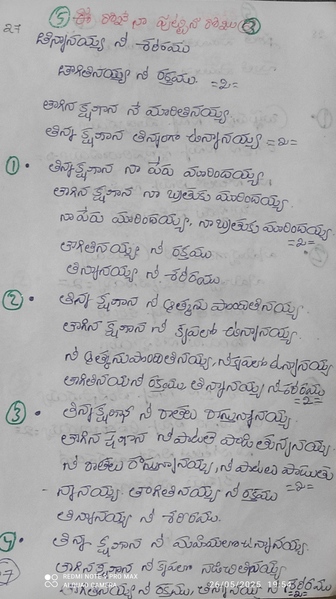 ⑤ ఈ రోజే నా పుట్టిన రోజు ③
27
తిన్నానయ్య నీ శరీరము
తాగితినయ్య నీ రక్తము. =2=
తాగిన క్షణాన నే మారితినయ్య
తిన్న క్షణాన తిన్నగా ఉన్నానయ్య =2=
① • తిన్న క్షణాన నా పేరు మారిందయ్య
తాగిన క్షణాన నా బ్రతుకు మారిందయ్య
నా పేరు మారిందయ్య, నా బ్రతుకు మారిందయ్య
=2=
తాగితినయ్య నీ రక్తము
తిన్నానయ్య నీ శరీరము
② • తిన్న క్షణాన నీ ఆత్మను పొందితినయ్య
తాగిన క్షణాన నీ కృపలో ఉన్నానయ్య
నీ ఆత్మను పొందితినయ్య, నీ కృపలో ఉన్నానయ్య
తాగితినయ నీ రక్తము, తిన్నానయ్య నీ శరీరము
=2=
③ • తిన్న క్షణాన నీ రాతలు రాస్తున్నానయ్య
తాగిన క్షణాన నీ పాటలే పాడి తున్ననయ్య
నీ రాతలు రాస్తున్నానయ్య, నీ పాటలు పాడుతు
- న్నానయ్య తాగితినయ్య నీ రక్తము =2=
తిన్నానయ్య నీ శరీరము.
4 • తిన్న క్షణాన నీ మహిమలో ఉన్నానయ్య
తాగిన క్షణాన నీ కృపలో
తాగితినయ్య నీ రక్తము, తిన్నానయ్య నీ శరీరము
REDMI NOTE 5 PRO MAX
AI QUAD CAMERA
26/05/2025 19:54